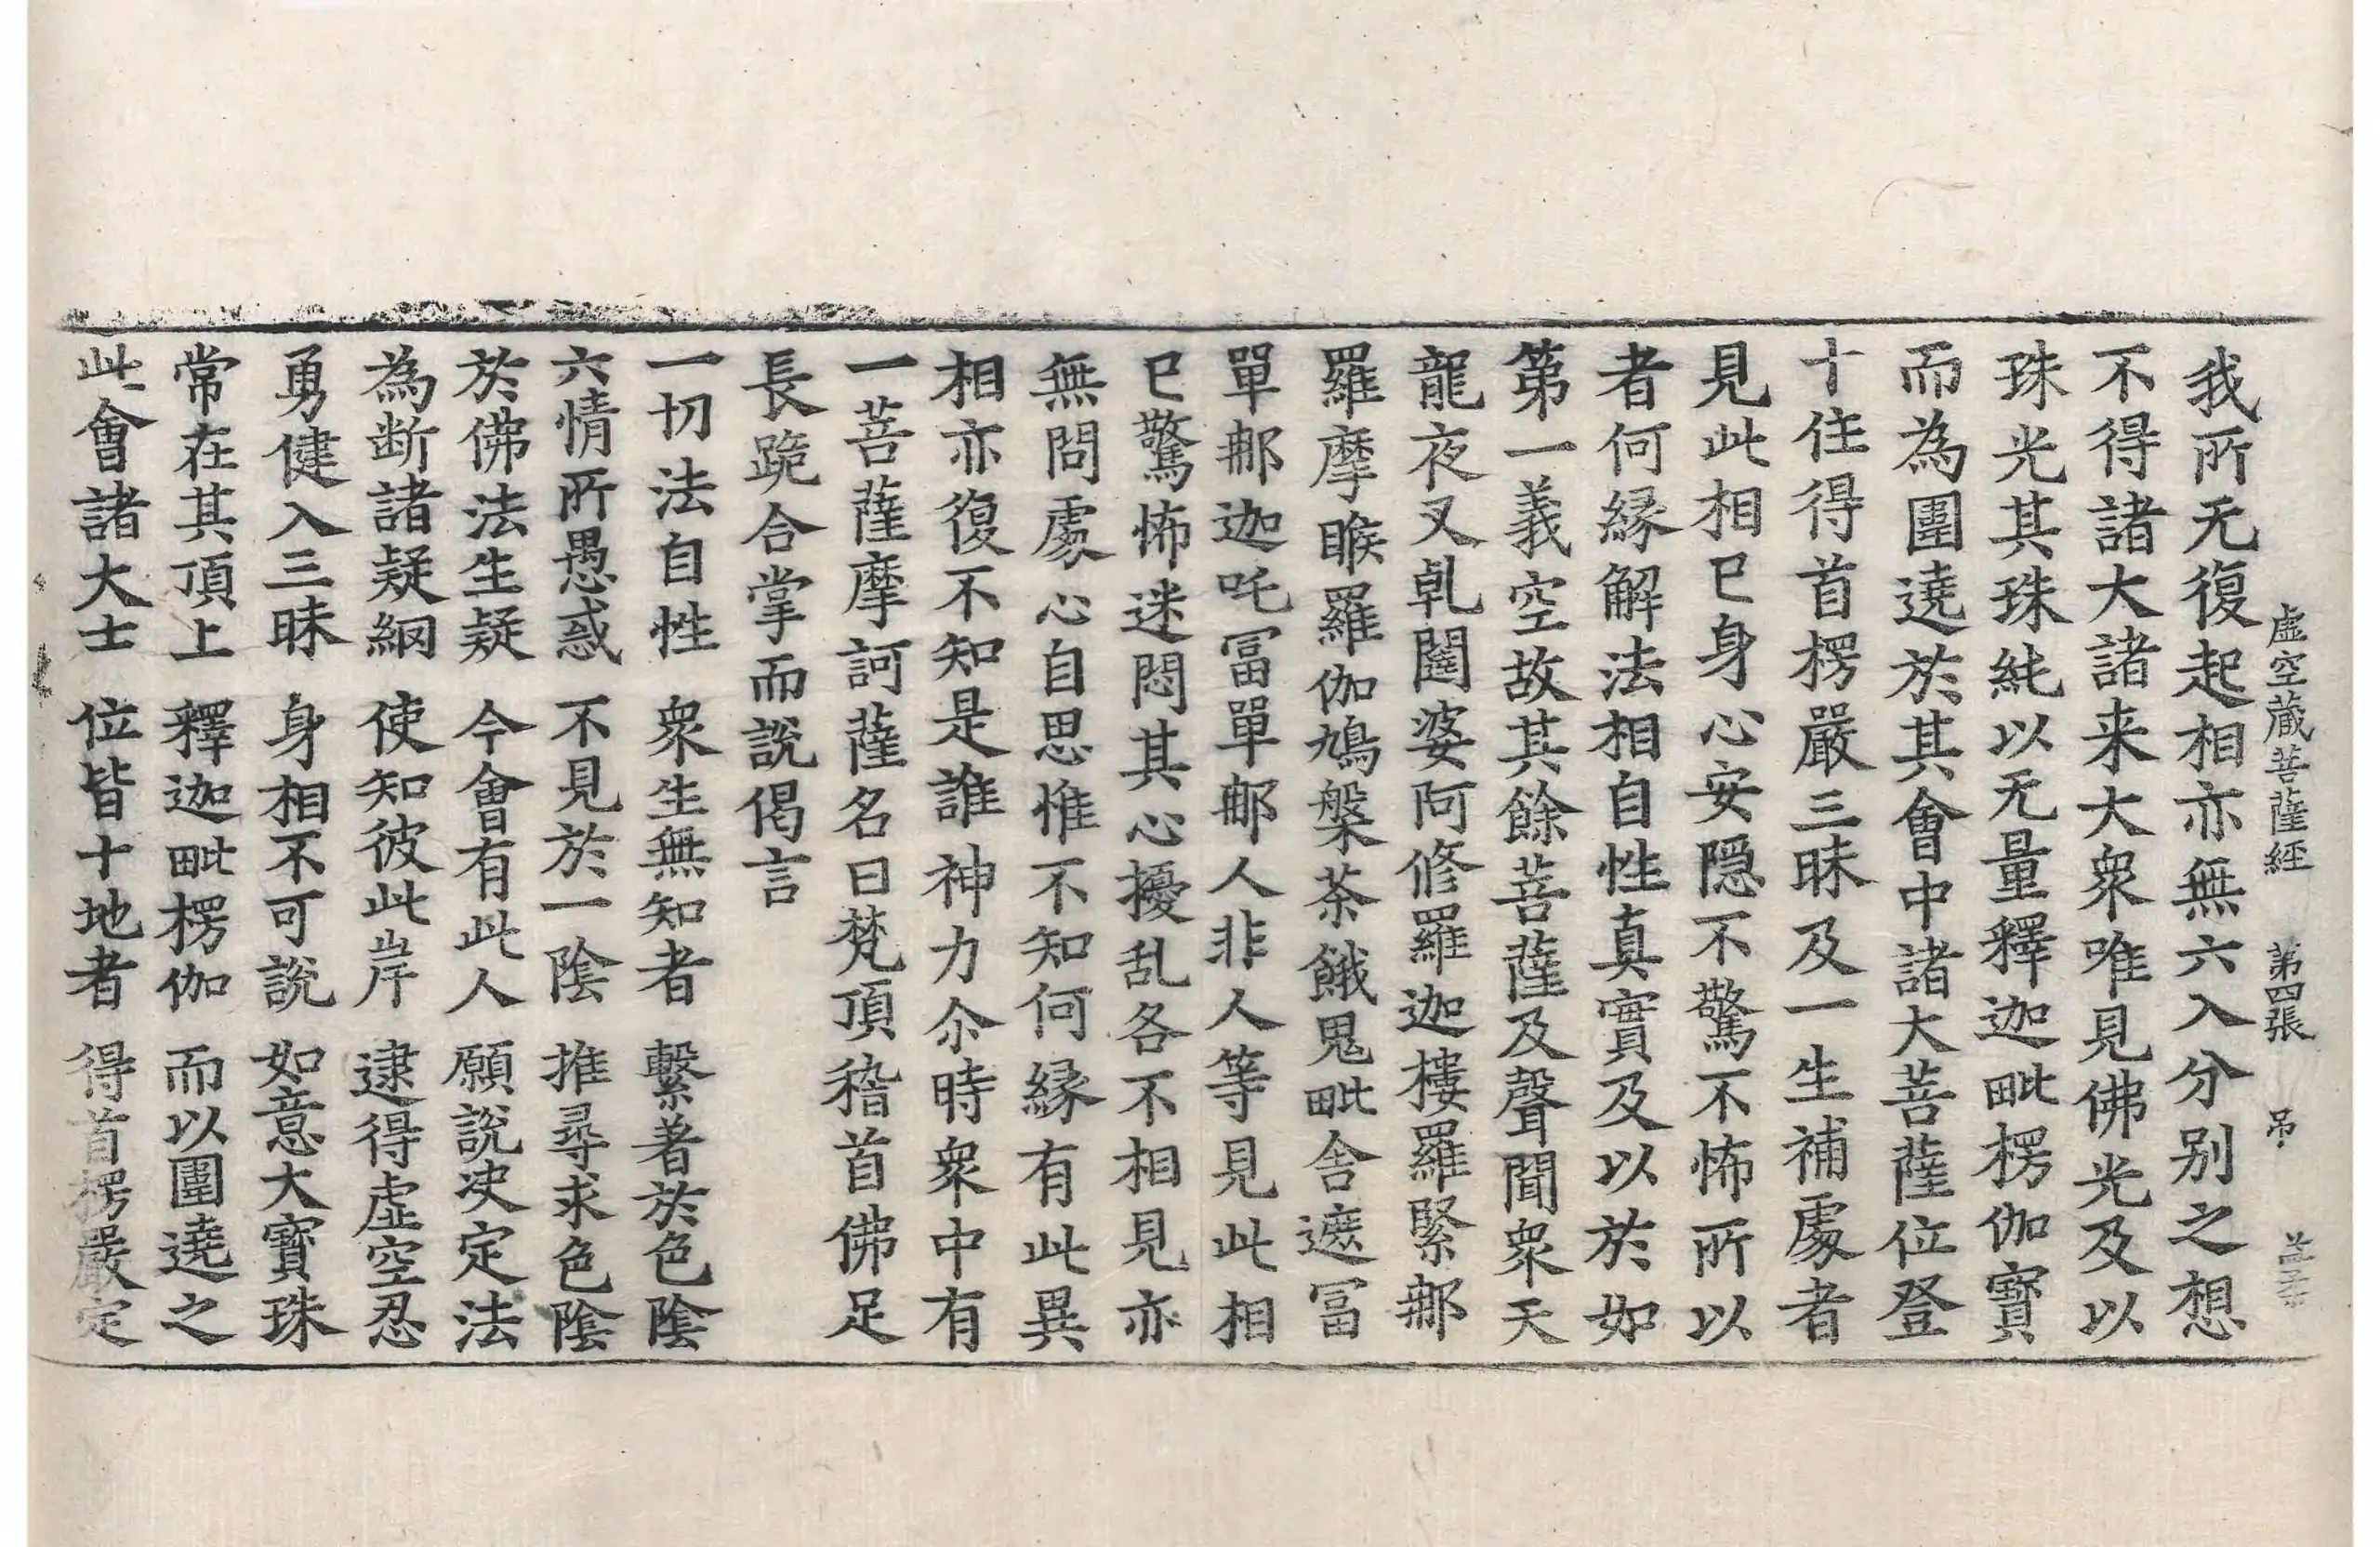 虛空蔵菩薩經 第四張 吊
我所无復起相亦無六入分别之想
不得諸大諸来大衆唯見佛光及以
珠光其珠純以无量釋迦毗楞伽寶
而為圍遶於其會中諸大菩薩位登
十住得首楞嚴三昧及一生補處者
見此相已身心安隠不驚不怖所以
者何緣解法相自性真實及以於如
第一義空故其餘菩薩及聲聞衆天
龍夜叉乹闥婆阿修羅迦樓羅緊𨚗
羅摩睺羅伽鳩槃荼餓鬼毗舍遮冨
單𨚗迦吒冨單𨚗人非人等見此相
已驚怖迷悶其心擾乱各不相見亦
無問處心自思惟不知何緣有此異
相亦復不知是誰神力尒時衆中有
一菩薩摩訶薩名曰梵頂稽首佛足
長跪合掌而說偈言
一切法自性 衆生無知者 繫著於色陰
六情所愚惑 不見於一陰 推尋求色陰
於佛法生疑 今會有此人 願說决定法
為断諸疑網 使知彼此岸 逮得虛空忍
勇健入三昧 身相不可說 如意大寶珠
常在其頂上 釋迦毗楞伽 而以圍遶之
此會諸大士 位皆十地者 得首楞嚴定